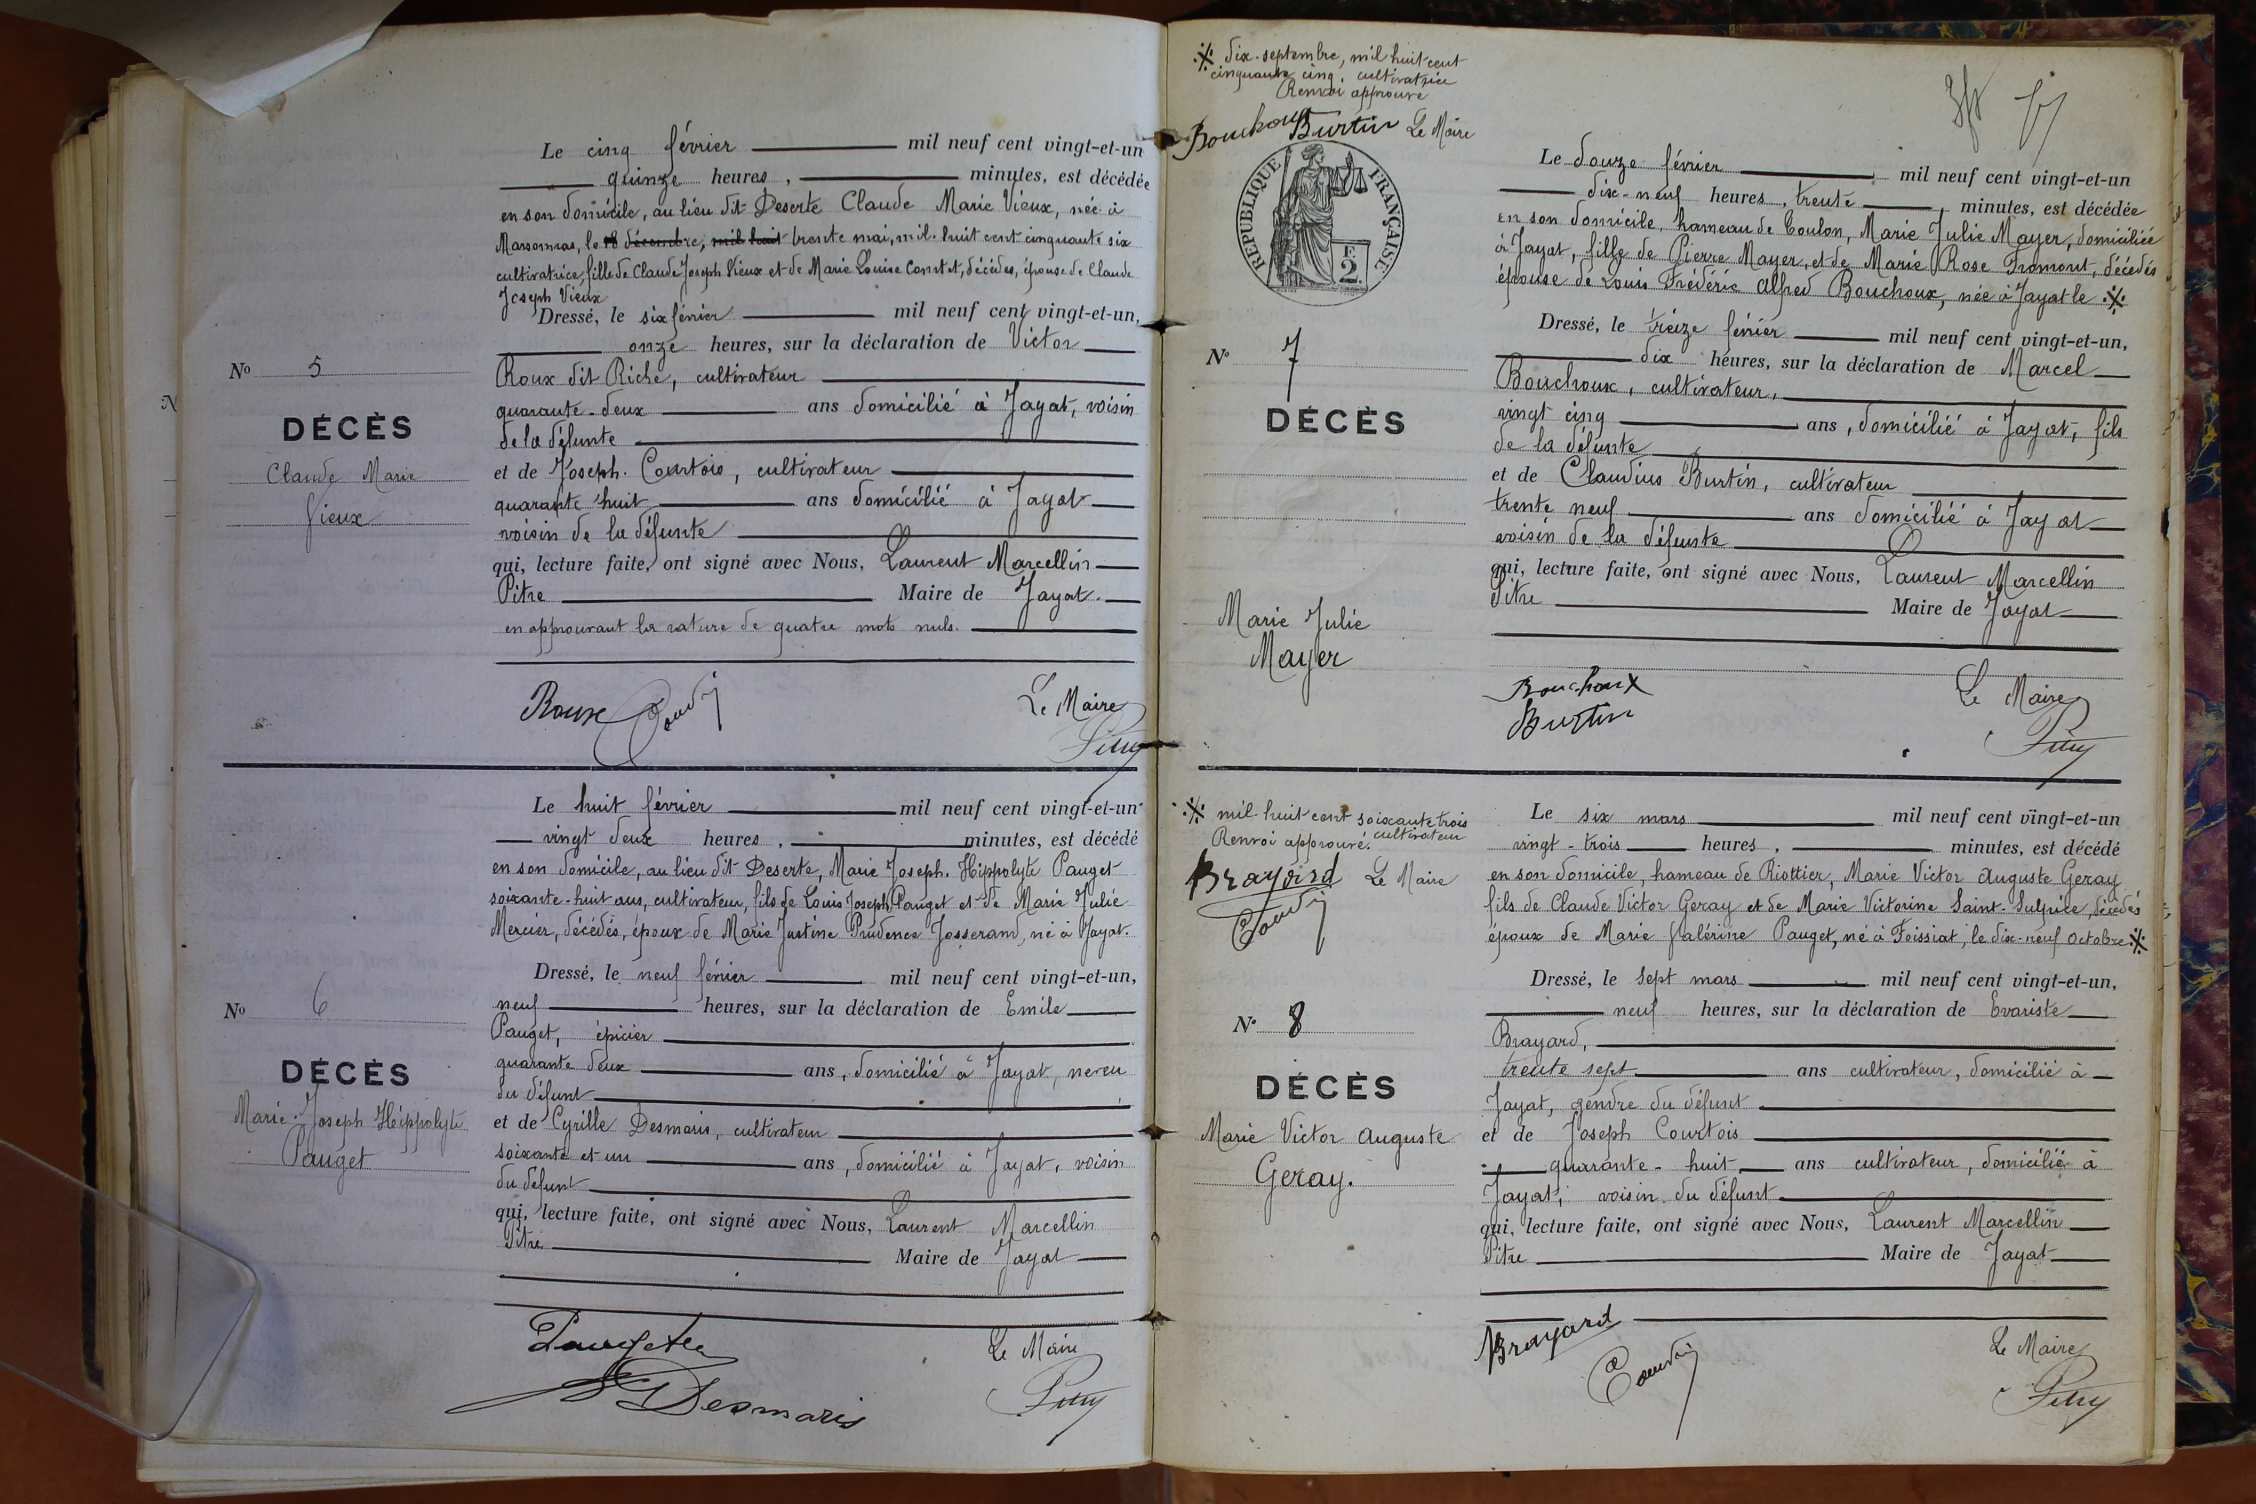 Le cinq février mil neuf cent vingt-et-un
quinze heures, minutes, est décédée
en son domicile, au lieu dit Deserte Claude Marie Vieux, née à
Marsonnas, le 18 décembre, mil huit trente mai, mil huit cent cinquante six
cultivatrice, fille de Claude Joseph Vieux et de Marie Louise Comtet, décédés, épouse de Claude
Joseph Vieux
Dressé, le six février mil neuf cent vingt-et-un,
onze heures, sur la déclaration de Victor
Roux dit Riche, cultivateur
quarante-deux ans domicilié à Jayat, voisin
de la défunte
et de Joseph Courtois, cultivateur
quarante huit ans domicilié à Jayat
voisin de la défunte
qui, lecture faite, ont signé avec Nous, Laurent Marcellin
Pitre Maire de Jayat.
en approuvant la rature de quatre mots nuls.
No 5
DÉCÈS
Claude Marie
Vieux
Roux
Le Maire
Le huit février mil neuf cent vingt-et-un
vingt deux heures, minutes, est décédé
en son domicile, au lieu dit Deserte, Marie Joseph Hippolyte Pauget
soixante-huit ans, cultivateur, fils de Louis Joseph Pauget et de Marie Julie
Mercier, décédés, époux de Marie Justine Prudence Josserand, né à Jayat.
Dressé, le neuf février mil neuf cent vingt-et-un,
neuf heures, sur la déclaration de Emile
Pauget, épicier
quarante deux ans, domicilié à Jayat, neveu
du défunt
et de Cyrille Desmaris, cultivateur
soixante et un ans, domicilié à Jayat, voisin
du défunt
qui, lecture faite, ont signé avec Nous, Laurent Marcellin
Pitre Maire de Jayat
No 6
DÉCÈS
Marie Joseph Hippolyte
Pauget
Desmaris
Le Maire
※ dix-septembre, mil huit cent
cinquante cinq, cultivatrice
Renvoi approuvé
Bouchoux Burtin Le Maire
RÉPUBLIQUE FRANÇAISE
2
Le douze février mil neuf cent vingt-et-un
dix-neuf heures, trente minutes, est décédée
en son domicile, hameau de Coulon, Marie Julie Mayer, domiciliée
à Jayat, fille de Pierre Mayer, et de Marie Rose Fromont, décédés
épouse de Louis Frédéric Alfred Bouchoux, née à Jayat le ※
Dressé, le treize février mil neuf cent vingt-et-un,
dix heures, sur la déclaration de Marcel
Bouchoux, cultivateur,
vingt cinq ans, domicilié à Jayat, fils
de la défunte
et de Claudius Burtin, cultivateur
trente neuf ans domicilié à Jayat
voisin de la défunte
qui, lecture faite, ont signé avec Nous, Laurent Marcellin
Pitre Maire de Jayat
No 7
DÉCÈS
Marie Julie
Mayer
Bouchoux
Burtin
Le Maire
※ mil huit cent soixante trois
cultivateur
Renvoi approuvé.
Brayard Le Maire
Le six mars mil neuf cent vingt-et-un
vingt-trois heures, minutes, est décédé
en son domicile, hameau de Riottier, Marie Victor Auguste Geray
fils de Claude Victor Geray et de Marie Victorine Saint-Sulpice, décédés
époux de Marie Valérine Pauget, né à Foissiat, le dix-neuf octobre ※
Dressé, le sept mars mil neuf cent vingt-et-un,
neuf heures, sur la déclaration de Evariste
Brayard,
trente sept ans cultivateur, domicilié à
Jayat, gendre du défunt
et de Joseph Courtois
quarante-huit ans cultivateur, domicilié à
Jayat, voisin du défunt
qui, lecture faite, ont signé avec Nous, Laurent Marcellin
Pitre Maire de Jayat
No 8
DÉCÈS
Marie Victor Auguste
Geray.
Brayard
Le Maire